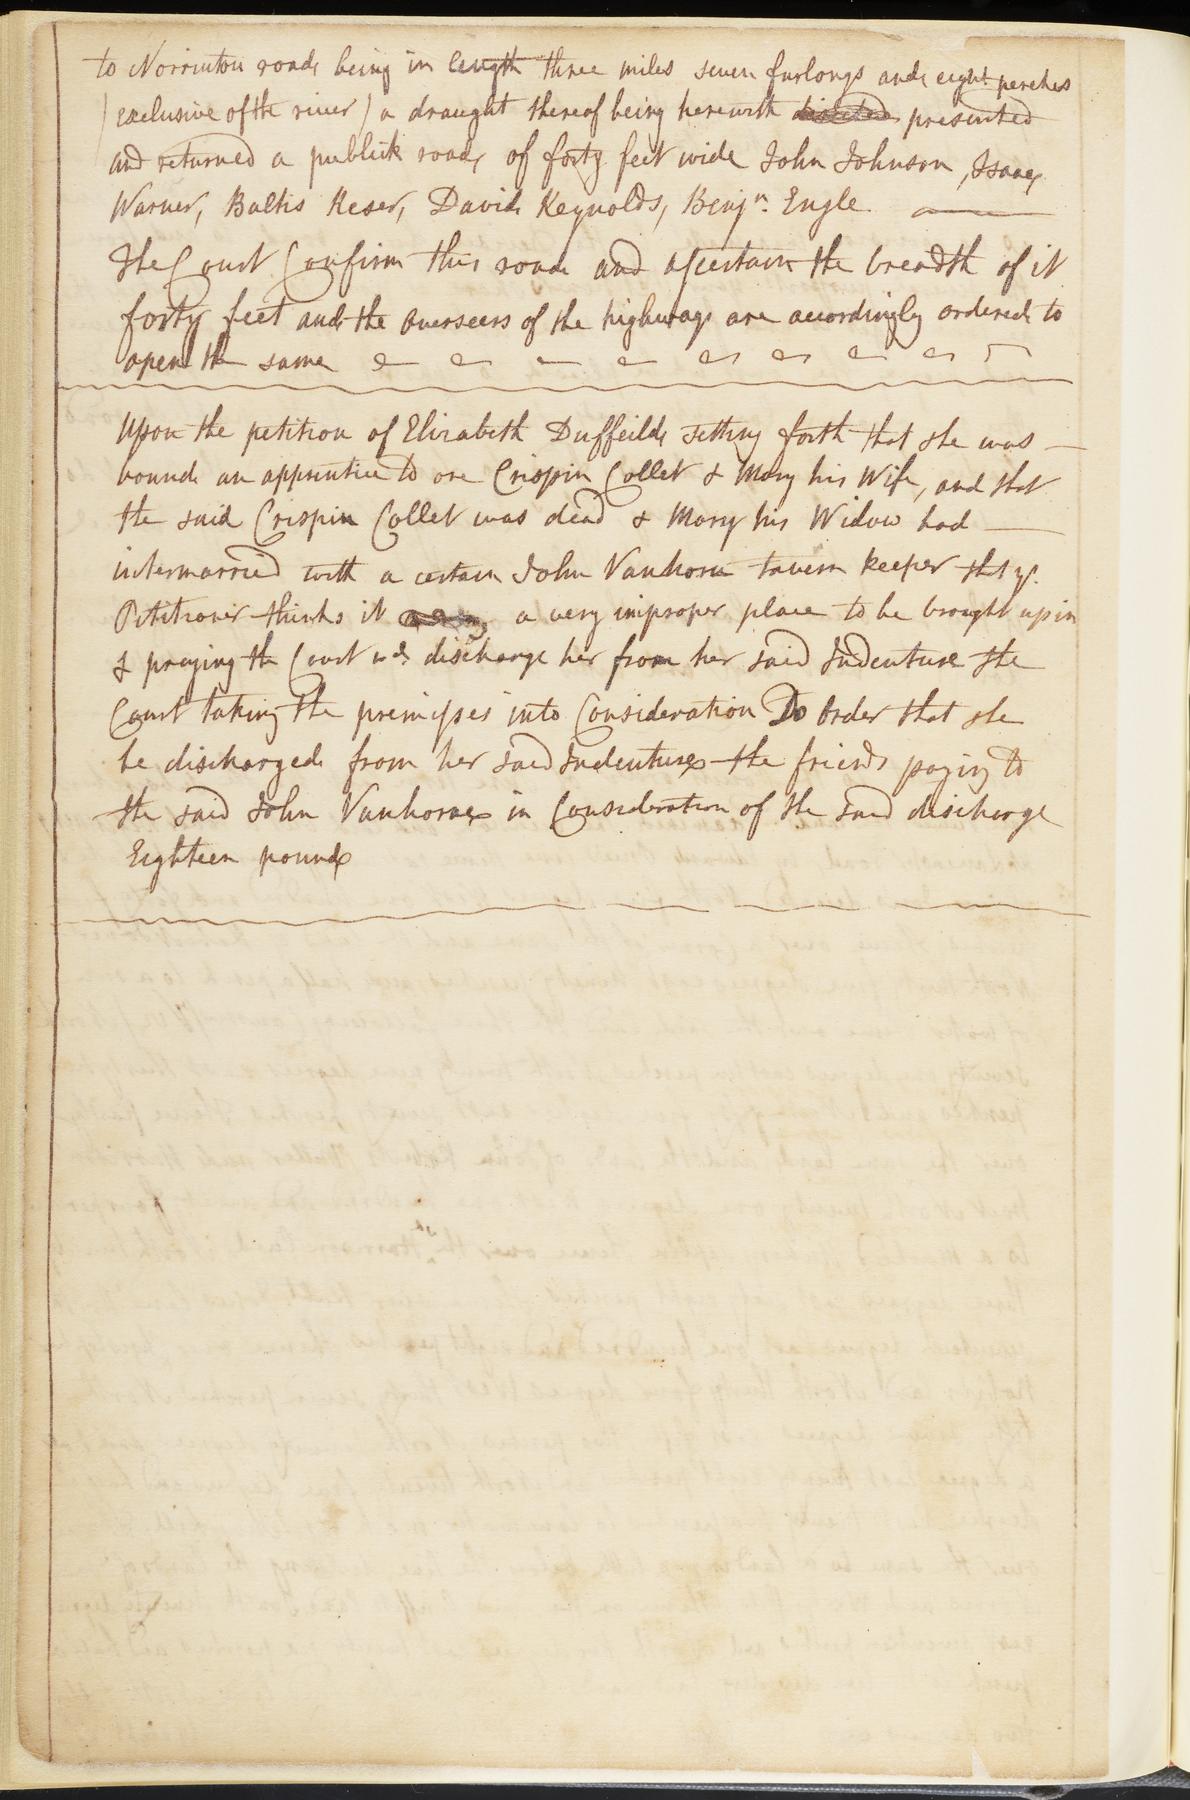 to Norrinton road being in length three miles seven furlongs and eight perches
(exclusive of the river) a draught thereof being herewith presented
and returned a publick road of forty feet wide John Johnson, Isaac
Warner, Baltis Reser, David Reynolds, Benjn. Engle
The Court Confirm this road and assertain the breadth of it
forty feet and the overseers of the highways are accordingly ordered to
open the same
Upon the petition of Elizabeth Duffeild setting forth that she was
bound an apprentice to one Crispin Collet & Mary his Wife, and that
the said Crispin Collet was dead & Mary his Widow had
intermarried with a certain John Vanhorne tavern keeper that yr.
Petitioner thinks it a very improper place to be brought up in
& praying the Court wd. discharge her from her said Indenture the
Court taking the premisses into Consideration Do Order that she
be discharged from her said Indentures the friends paying to
the said John Vanhorne in Consideration of the said discharge
Eighteen pounds